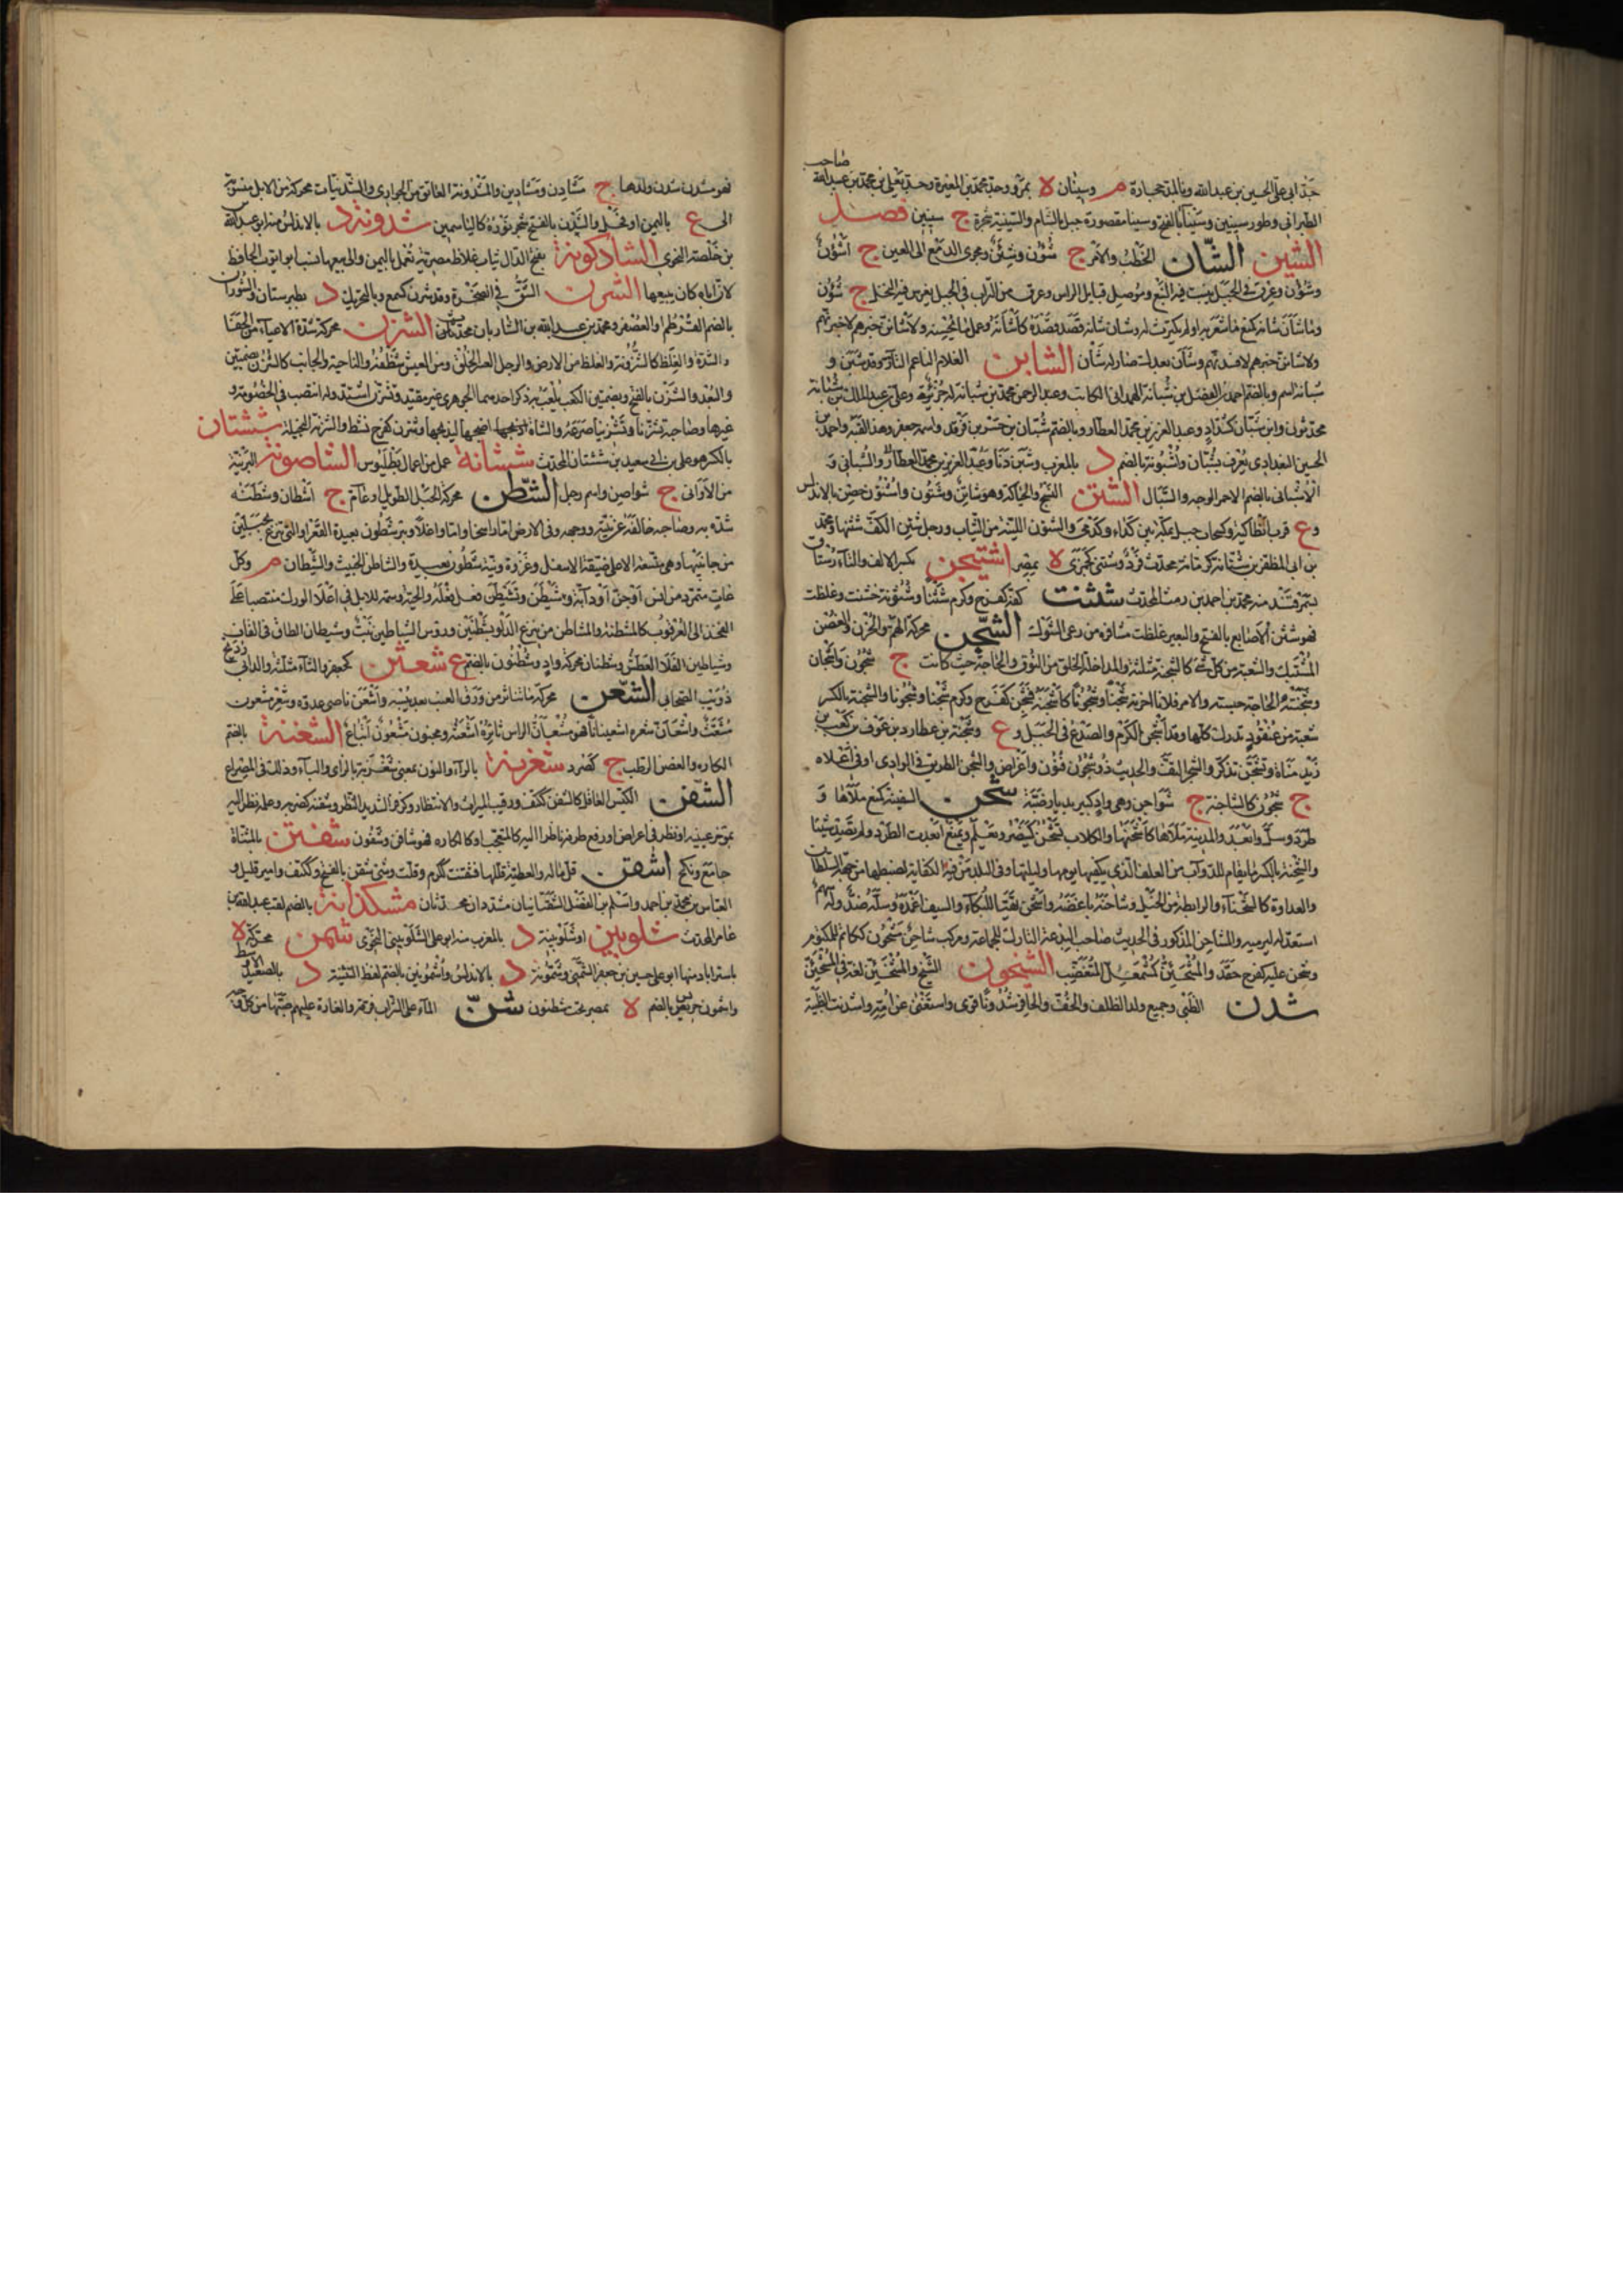 جد ابي علي الحسين بن عبد الله وبالمد حجارة م وسينان ه بمرو وجد محمد بن المغيرة وجد يغلي بن محمد بن عبد الله صاحب
الطبراني وطور سينين وسينآ بالفتح وسينا مقصورة جبل بالشام والسينينة شجرة ج سينين فصل
الشين الشّان الخطب والامر ج شؤون وشئن ومجرى الدمع الى العين ج اشؤن
وشؤن وعرق في الجبل ينبت فيه النبع وموصل قبايل الراس وعرق من التراب في الجبل يغرس فيه النخل ج شؤن
وما شأن شانه كمنع ما شعر به او لم يكترث له وشان شانه قصد قصده كاشتانه وعمل ما يحسنه ولاشانن خبرهم لاخبرنهم
ولاشانن خبرهم لافسدنهم وشأن بعدك صار له شأن الشابن الغلام الناعم التار وقد شبن و
شبانة اسم وبالضم احمد بن الفضل بن شبانة الهمداني الكاتب وعبد الرحمن محمد بن شبانة له جزئ وعلي بن عبد الملك بن شبانة
محدثون وابن شبان كشداد وعبد العزيز بن محمد العطار وبالضم شبان بن جسر بن فرقد واسمه جعفر وهذا لقبه واحمد بن
الحسين البغدادي يعرف بشبان واشبونة بالضم د بالمغرب وشبن دنا وعبد العزيز بن محمد العطار والشباني و
الاشباني بالضم الاحمر الوجه والسبال الشتن النسج والحياكة وهو شاتن وشتون واشتون حصن بالاندلس
و ع قرب انطاكية وكسحاب جبل بمكة بين كداء وكدي والشتون اللينة من الثياب ورجل شتن الكف شثنها ومحمد
بن ابي المظفر بن شتانة كرمانة محدث فرد وشتنى كجمزى ه بمصر اشتيخن بكسر الالف والتآء رستاق
بسمرقند منه محمد بن احمد بن مت المحدث شثنت كفه كفرح وكرم شثنا وشثونة خشنت وغلظت
فهو شثن الاصابع بالفتح والبعير غلظت مشافره من رعى الشوك الشجن محركة الهم والحزن والغصن
المشتبك والشعبة من كل شئ كالشجنة مثلثة والمتداخلة الخلق من النوق والحاجة حيث كانت ج شجون واشجان
وشجنته الحاجة حبسته والامر فلانا احزنه شجنا وشجونا كاشجنه فشجن كفرح وكرم شجنا وشجونا والشجنة بالكسر
شعبة من عنقود تدرك كلها وقد اشجن الكرم والصدع في الجبل و ع وشجنة بن عطارد بن عوف بن كعب بن
زيد مناة وتشجن تذكر والشجر التف والحديث ذو شجون فنون واغراض والشجن الطريق في الوادي او في اعلاه
ج شجون كالشاجنة ج شواجن وهي واد كبير بديار ضبة شحن السفينة كمنع ملأها و
طرد وسلّ وابعد والمدينة ملأها كاشحنها والكلاب تشحن كينصر ويعلم ويمنع ابعدت الطرد ولم تصد شيئا
والشحنة بالكسر ما يقام للدوآب من العلف الذي يكفيها يومها وليلتها وفي البلد من فيه الكفاية لضبطها من جهة السلطان
والعداوة كالشحنآء والرابطة من الخيل وشاحنه باغضه واشحن تهيّا للبكآء والسيف اغمده وسلّه ضد وله بسهم
استعد له ليرميه والمشاحن المذكور في الحديث صاحب البدعة التارك للجماعة ومركب شاحن مشحون ككاتم للمكتوم
وشحن عليه كفرح حقد والمشحئن كمشمعل المتغضب الشيخون الشيخ والمشخئن لغة في المشحئن
شدن الظبي وجميع ولد الظلف والخف والحافر شدونا قوى واستغنى عن امه واشدنت الظبية
فهو مشدن شدن ولدها ج مشادن ومشادين والمشدونة العاتق من الجوارى والشدنيات محركة من الابل منسوبة
الى ع باليمن او فحل والشدن بالفتح شجر نوره كالياسمين شدونة د بالاندلس منه ابو عبد الله
بن خلصة النحوي الشادكونة بفتح الدال ثياب غلاظ مضربة تعمل باليمن والى بيعها نسب ابو ايوب الحافظ
لان اباه كان يبيعها الشرن الشق في الصخرة وقد شرن كسمع وبالتحريك د بطبرستان والشوران
بالضم القرطم او العصفر ومحمد بن عبد الله بن الشاربان محدث الشزن محركة شدة الاعيآء من الحفا
والشدة والغلظ كالشزونة والغلظ من الارض والرجل العسر الخلق ومن العيش شظفه والناحية والجانب كالشزن بضمتين
والبعد والشزن بالفتح وبضمتين الكعب يلعب به ذكر احدهما الجوهري غير مقيد وتشزن اشتد وله انتصب في الخصومة و
غيرها وصاحبه تشزنا وتشزينا صرعه والشاة اضجعها ليذبحها وشزن كفرح نشط والشزنة البخيلة ششتان
بالكسر هو علي بن ابي سعيد بن ششتان المحدث ششانة عمل من اعمال بطليوس الشاصونة البرنية
من الاواني ج شواصن واسم رجل الشطن محركة الحبل الطويل او عام ج اشطان وشطنه
شده به وصاحبه خالفه عن نيته ووجهه وفي الارض اما راسخا واما واغلا وبئر شطون بعيدة القعر او التي تنزع بحبلين
من جانبيها وهي متسعة الاعلى ضيقة الاسفل وغزوة ونية شطون بعيدة والشاطن الخبيث والشيطان م وكل
عات متمرد من انس او جن او دآبة وشيطن وتشيطن فعل فعله والحية وسمة للابل في اعلا الورك منتصبا على
الفخذ الى العرقوب كالمشيطنة والمشاطن من ينزع الدلو بشطنين وروس الشياطين نبت وشيطان الطاق في القاف
وشياطين الفلا العطش وشطنان محركة واد وشطنون بالضم ع شعثن كجعفر والثآء مثلثة والد ابي رديح
ذؤيب الصحابي الشعن محركة ما تناثر من ورق العنب بعد يبسه واشعن ناصى عدوه وشعر مشعون
مشعث واشعان شعره اشعينانا فهو مشعان الراس ثائره اشعثه ومجنون مشعون اتباع الشغنة بالضم
الكاره والغصن الرطب ج كصرد شغزنة بالزآء والنون بمعنى شغزبة بالزاي والبآء وذلك في الصراع
الشفن الكيس العاقل كالشفن ككتف ورقيب الميراث والانتظار وكزفر الشديد النظر وشفنه كضربه وعلمه نظر اليه
بموخر عينيه او نظر في اعراض او رفع طرفه ناظرا اليه كالمتعجب او كالكاره فهو شافن وشفون شفتن بالمثناة
جامع ونكح اشقن قل ماله والعطية قللها فشقنت ككرم وقلت وشئ شقن بالفتح وككتف وامير قليل و
العباس بن محمد بن احمد واسلم بن الفضل الشقانيان مشددان محدثان مشكدانة بالضم لقب عبد الله بن
عامر المحدث شلوبين او شلوبينة د بالمغرب منه ابو علي الشلوبيني النحوي شمن محركة ه
باستراباد منها ابو علي حسين بن جعفر الشمني وشمونة د بالاندلس واشمونين بالضم لفظ التثنية د بالصعيد الاوسط
واشمون جريس بالضم ه بمصر تحت شطنوف شنّ المآء على الشراب فرقه والغارة عليهم صبها من كل وجه